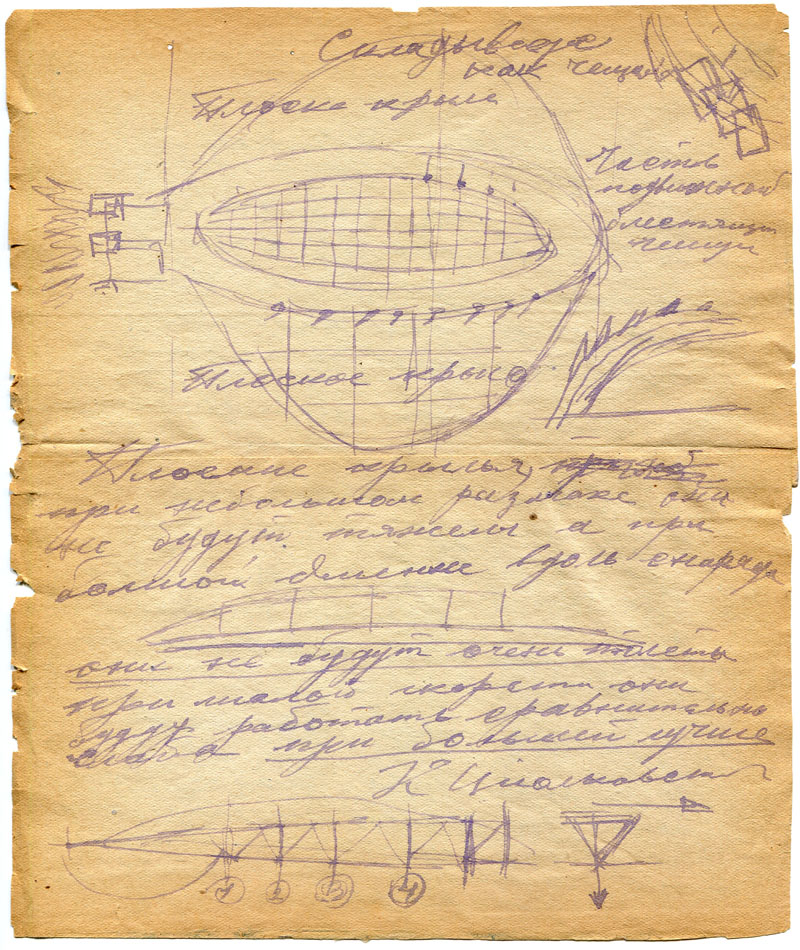 Складывсь
как чешуя
Плоска крыла
Часть
подвижной
блестящи
чешуи
Плоское крыло
Плоские крылья,
при небольшом размахе они
не будут тяжелы а при
вдоль снаряда
они не будут очень
при малой скорости они
будут работать сравнительно
слабо а при большей лучше
К Циолковский
1 2 3 4